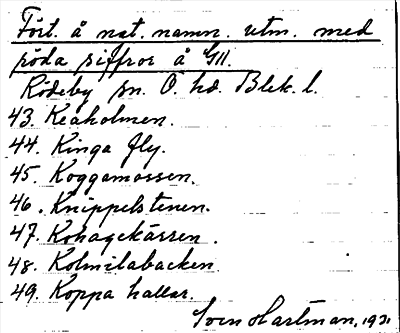 Fört. å nat. namn. utm. med
röda siffror å GM.
Rödeby sn. Ö. hd. Blek. l.
43. Keaholmen.
44. Kinga fly.
45. Koggamossen.
46. Knippelstenen.
47. Kohagekärren.
48. Kolmilabacken
49. Koppa hallar.
Sven Hartman, 1931